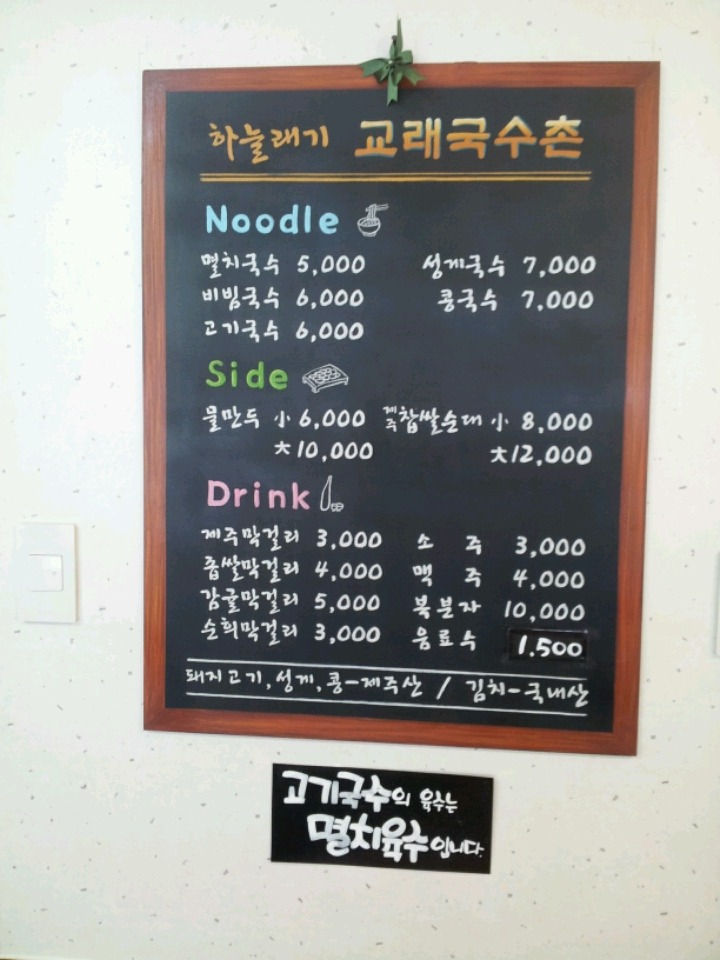 하늘래기 교래국수촌
Noodle
멸치국수 5,000 성게국수 7,000
비빔국수 6,000 콩국수 7,000
고기국수 6,000
Side
물만두 小 6,000 제주찹쌀순대 小 8,000
大 10,000 大 12,000
Drink
제주막걸리 3,000 소 주 3,000
좁쌀막걸리 4,000 맥 주 4,000
감귤막걸리 5,000 복분자 10,000
순희막걸리 3,000 음료수 1,500
돼지고기, 성게, 콩-제주산 / 김치-국내산
고기국수의 육수는
멸치육수입니다.